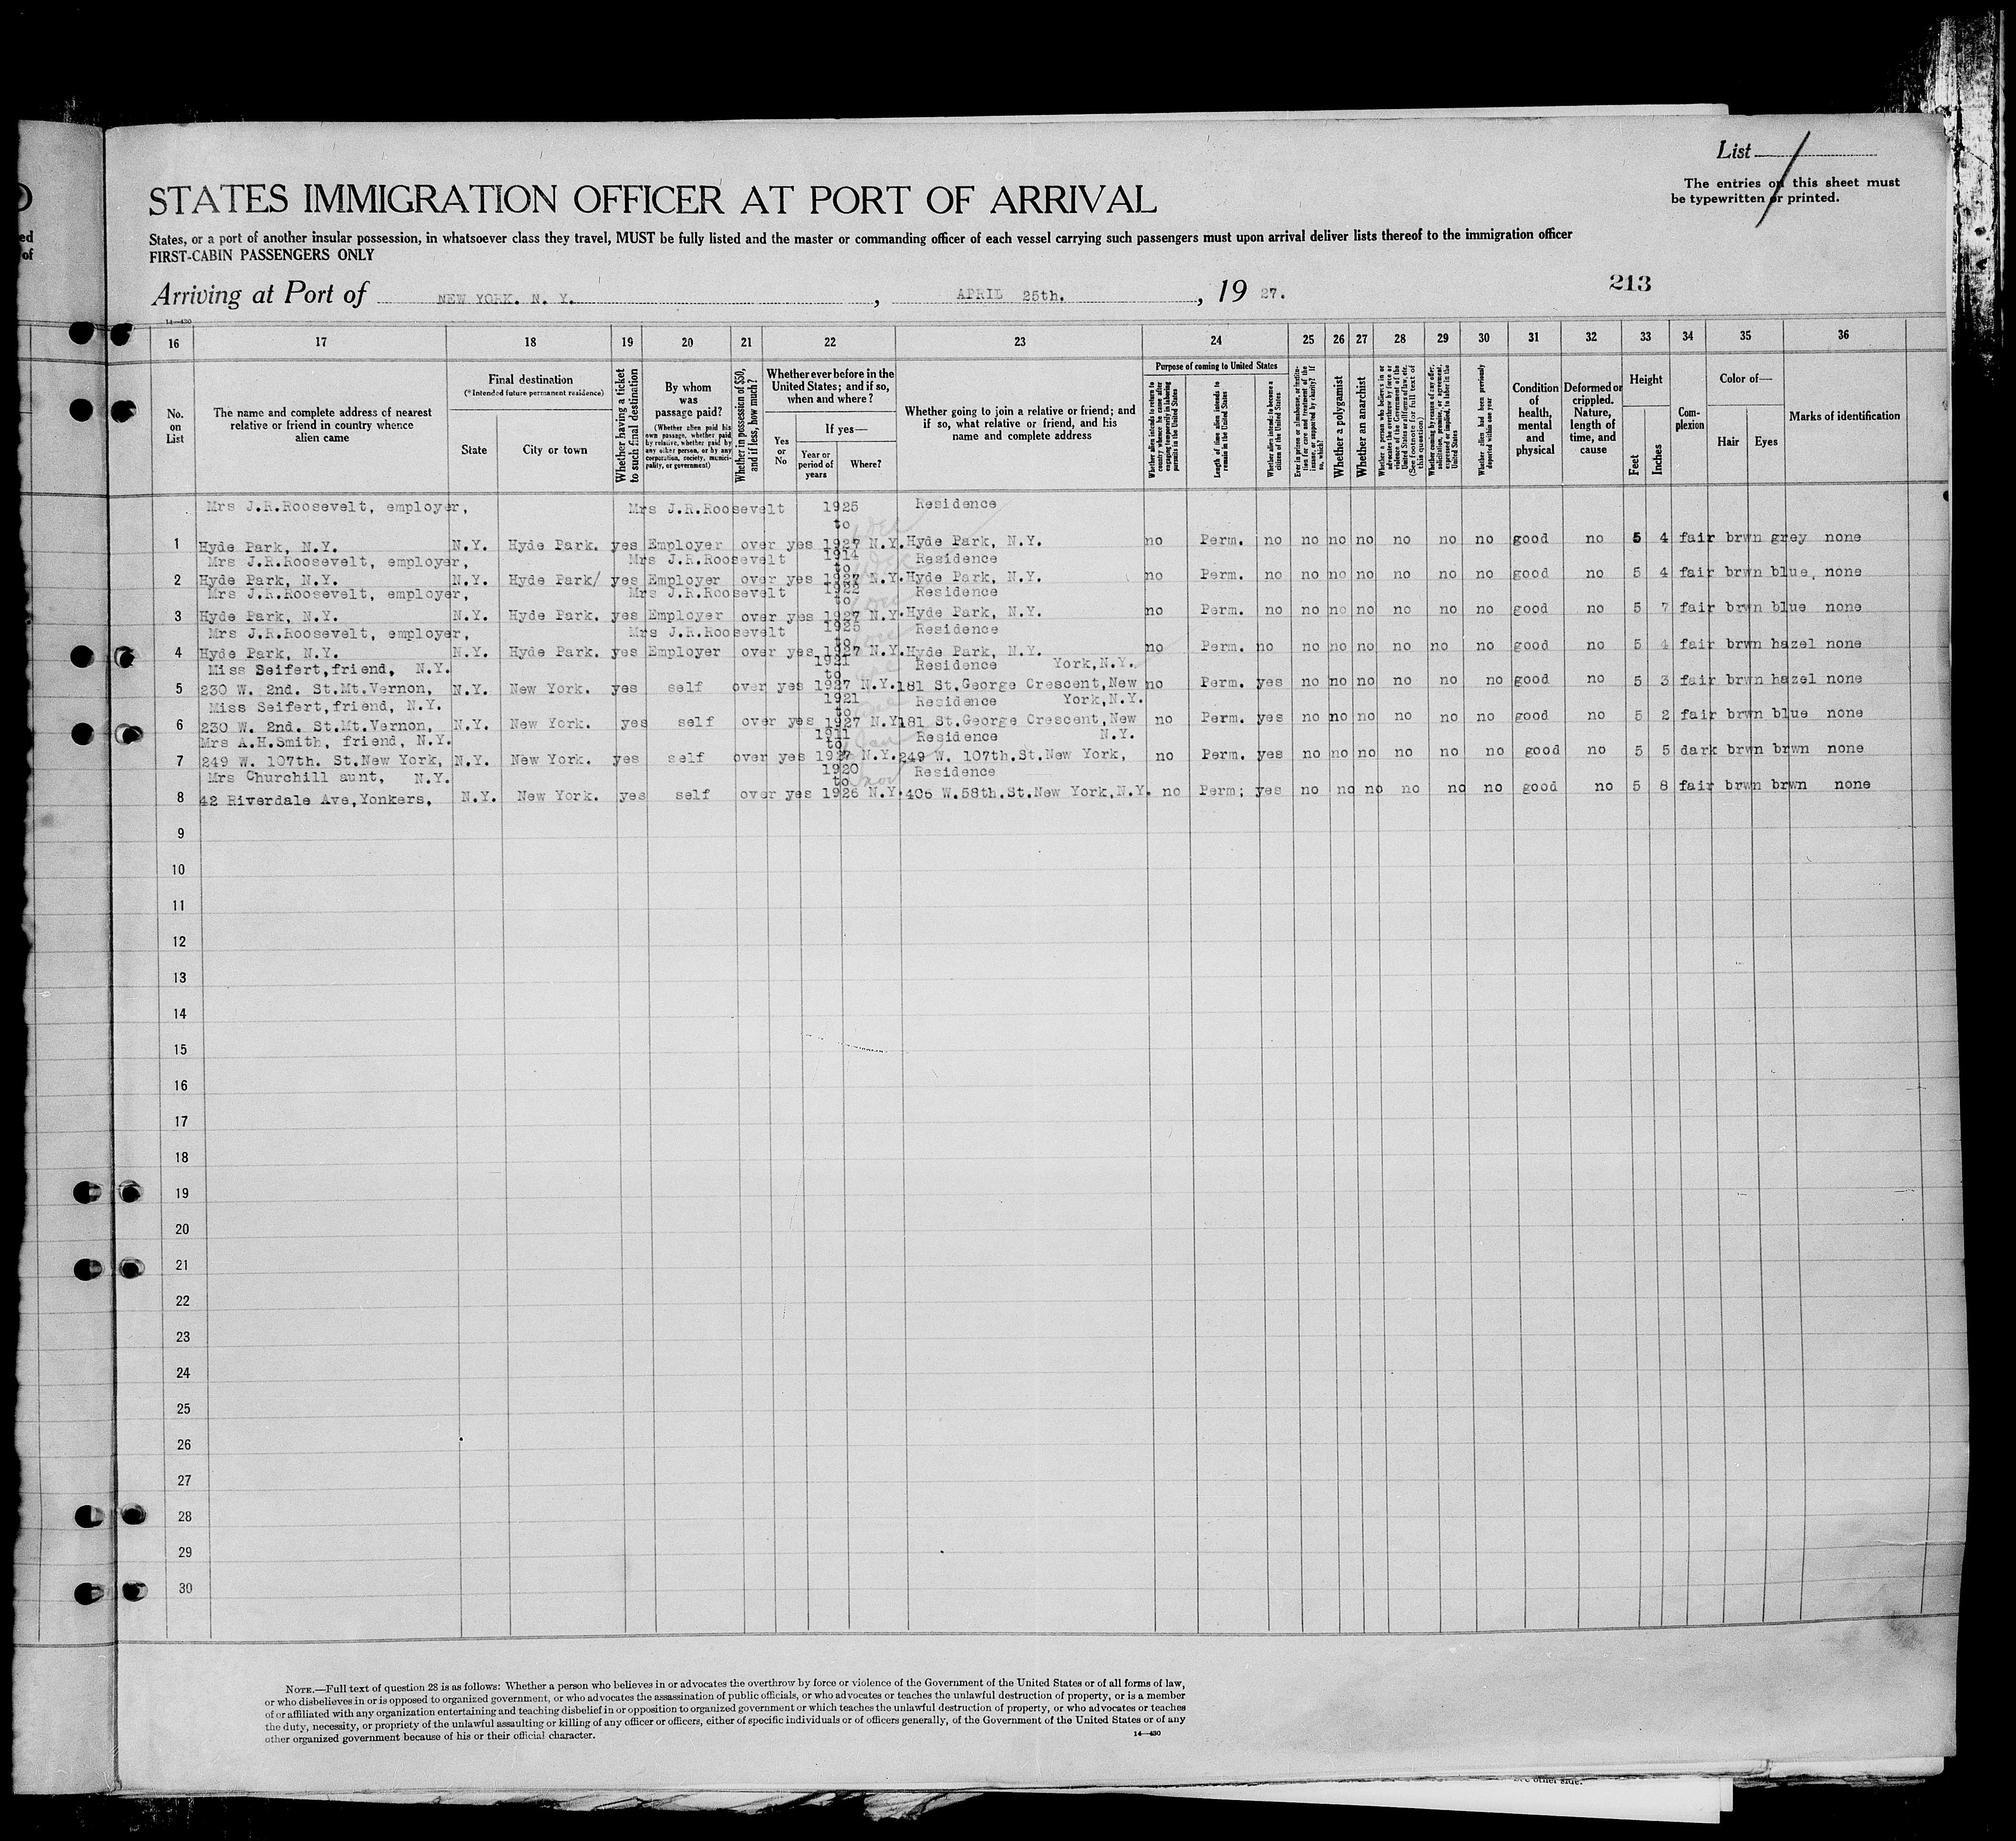 List
The entries on this sheet must
be typewritten or printed.
STATES IMMIGRATION OFFICER AT PORT OF ARRIVAL
States, or a port of another insular possession, in whatsoever class they travel, MUST be fully listed and the master or commanding officer of each vessel carrying such passengers must upon arrival deliver lists thereof to the immigration officer
FIRST-CABIN PASSENGERS ONLY
Arriving at Port of NEW YORK. N. Y. , APRIL 25th. , 19 27.
213
14—430
16 17 18 19 20 21 22 23 24 25 26 27 28 29 30 31 32 33 34 35 36
No. on List
The name and complete address of nearest relative or friend in country whence alien came
Final destination
(*Intended future permanent residence)
State
City or town
Whether having a ticket to such final destination
By whom was passage paid?
(Whether alien paid his own passage, whether paid by relative, whether paid by any other person, or by any corporation, society, municipality, or government)
Whether in possession of $50, and if less, how much?
Whether ever before in the United States; and if so, when and where?
Yes or No
If yes—
Year or period of years
Where?
Whether going to join a relative or friend; and if so, what relative or friend, and his name and complete address
Purpose of coming to United States
Whether alien intends to return to country whence he came after engaging temporarily in laboring pursuits in the United States
Length of time alien intends to remain in the United States
Whether alien intends to become a citizen of the United States
Ever in prison or almshouse, or institution for care and treatment of the insane, or supported by charity? If so, which?
Whether a polygamist
Whether an anarchist
Whether a person who believes in or advocates the overthrow by force or violence of the Government of the United States or all forms of law, etc. (See footnote for full text of this question)
Whether coming by reason of any offer, solicitation, promise, or agreement, expressed or implied, to labor in the United States
Whether alien had been previously deported within one year
Condition of health, mental and physical
Deformed or crippled. Nature, length of time, and cause
Height
Feet
Inches
Complexion
Color of—
Hair
Eyes
Marks of identification
Mrs J.R.Roosevelt, employer, Mrs J.R.Roosevelt 1925 Residence
to
1 Hyde Park, N.Y. N.Y. Hyde Park. yes Employer over yes 1927 N.Y. Hyde Park, N.Y. no Perm. no no no no no no no good no 5 4 fair brwn grey none
Mrs J.R.Roosevelt, employer, Mrs J.R.Roosevelt 1914 Residence
to
2 Hyde Park, N.Y. N.Y. Hyde Park/ yes Employer over yes 1927 N.Y. Hyde Park, N.Y. no Perm. no no no no no no no good no 5 4 fair brwn blue, none
Mrs J.R.Roosevelt, employer, Mrs J.R.Roosevelt 1922 Residence
to
3 Hyde Park, N.Y. N.Y. Hyde Park. yes Employer over yes 1927 N.Y. Hyde Park, N.Y. no Perm. no no no no no no no good no 5 7 fair brwn blue none
Mrs J.R.Roosevelt, employer, Mrs J.R.Roosevelt 1925 Residence
to
4 Hyde Park, N.Y. N.Y. Hyde Park. yes Employer over yes 1927 N.Y. Hyde Park, N.Y. no Perm. no no no no no no no good no 5 4 fair brwn hazel none
Miss Seifert,friend, N.Y. 1921 Residence York,N.Y.
to
5 230 W. 2nd. St.Mt.Vernon, N.Y. New York. yes self over yes 1927 N.Y. 181 St.George Crescent,New no Perm. yes no no no no no no good no 5 3 fair brwn hazel none
Miss Seifert,friend, N.Y. 1921 Residence York,N.Y.
to
6 230 W. 2nd. St.Mt.Vernon, N.Y. New York. yes self over yes 1927 N.Y 181 St.George Crescent,New no Perm. yes no no no no no no good no 5 2 fair brwn blue none
Mrs A.H.Smith, friend, N.Y. 1911 Residence N.Y.
to Jan
7 249 W. 107th. St.New York, N.Y. New York. yes self over yes 1927 N.Y. 249 W. 107th.St.New York, no Perm. yes no no no no no no good no 5 5 dark brwn brwn none
Mrs Churchill aunt, N.Y. 1920 Residence
to nov
8 42 Riverdale Ave,Yonkers, N.Y. New York. yes self over yes 1926 N.Y. 406 W.58th.St.New York,N.Y. no Perm; yes no no no no no no good no 5 8 fair brwn brwn none
9
10
11
12
13
14
15
16
17
18
19
20
21
22
23
24
25
26
27
28
29
30
NOTE.—Full text of question 28 is as follows: Whether a person who believes in or advocates the overthrow by force or violence of the Government of the United States or of all forms of law,
or who disbelieves in or is opposed to organized government, or who advocates the assassination of public officials, or who advocates or teaches the unlawful destruction of property, or is a member
of or affiliated with any organization entertaining and teaching disbelief in or opposition to organized government or which teaches the unlawful destruction of property, or who advocates or teaches
the duty, necessity, or propriety of the unlawful assaulting or killing of any officer or officers, either of specific individuals or of officers generally, of the Government of the United States or of any
other organized government because of his or their official character.
14—430
other side.